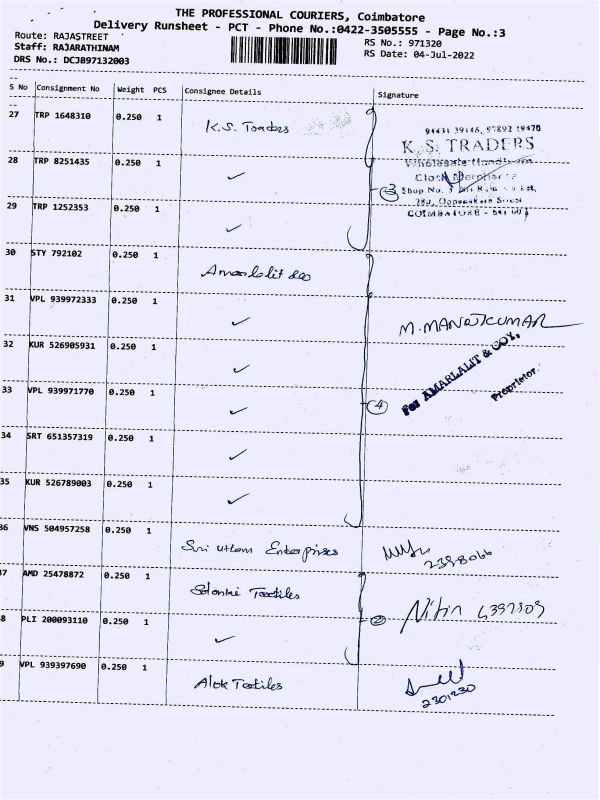 THE PROFESSIONAL COURIERS, Coimbatore
Delivery Runsheet - PCT - Phone No.:0422-3505555 - Page No.:3
Route: RAJASTREET
Staff: RAJARATHINAM
DRS No.: DCJB97132003
RS No.: 971320
RS Date: 04-Jul-2022
S No Consignment No Weight PCS Consignee Details Signature
27 TRP 1648310 0.250 1 K.S. Traders
94431 39146, 97892 19470
K. S. TRADERS
28 TRP 8251435 0.250 1 ✓
3
Shop No.
COIMBATORE
29 TRP 1252353 0.250 1 ✓
30 STY 792102 0.250 1
31 VPL 939972333 0.250 1 ✓
M. MANOJKUMAR
32 KUR 526905931 0.250 1 ✓
For AMARLALIT & COY,
Proprietor
33 VPL 939971770 0.250 1 ✓
4
34 SRT 651357319 0.250 1 ✓
35 KUR 526789003 0.250 1 ✓
36 VNS 504957258 0.250 1 Sri Uttam Enterprises
2398066
37 AMD 25478872 0.250 1 Solanki Textiles
Nitin
8 PLI 200093110 0.250 1 ✓
2
9 VPL 939397690 0.250 1 Alok Textiles
2301230